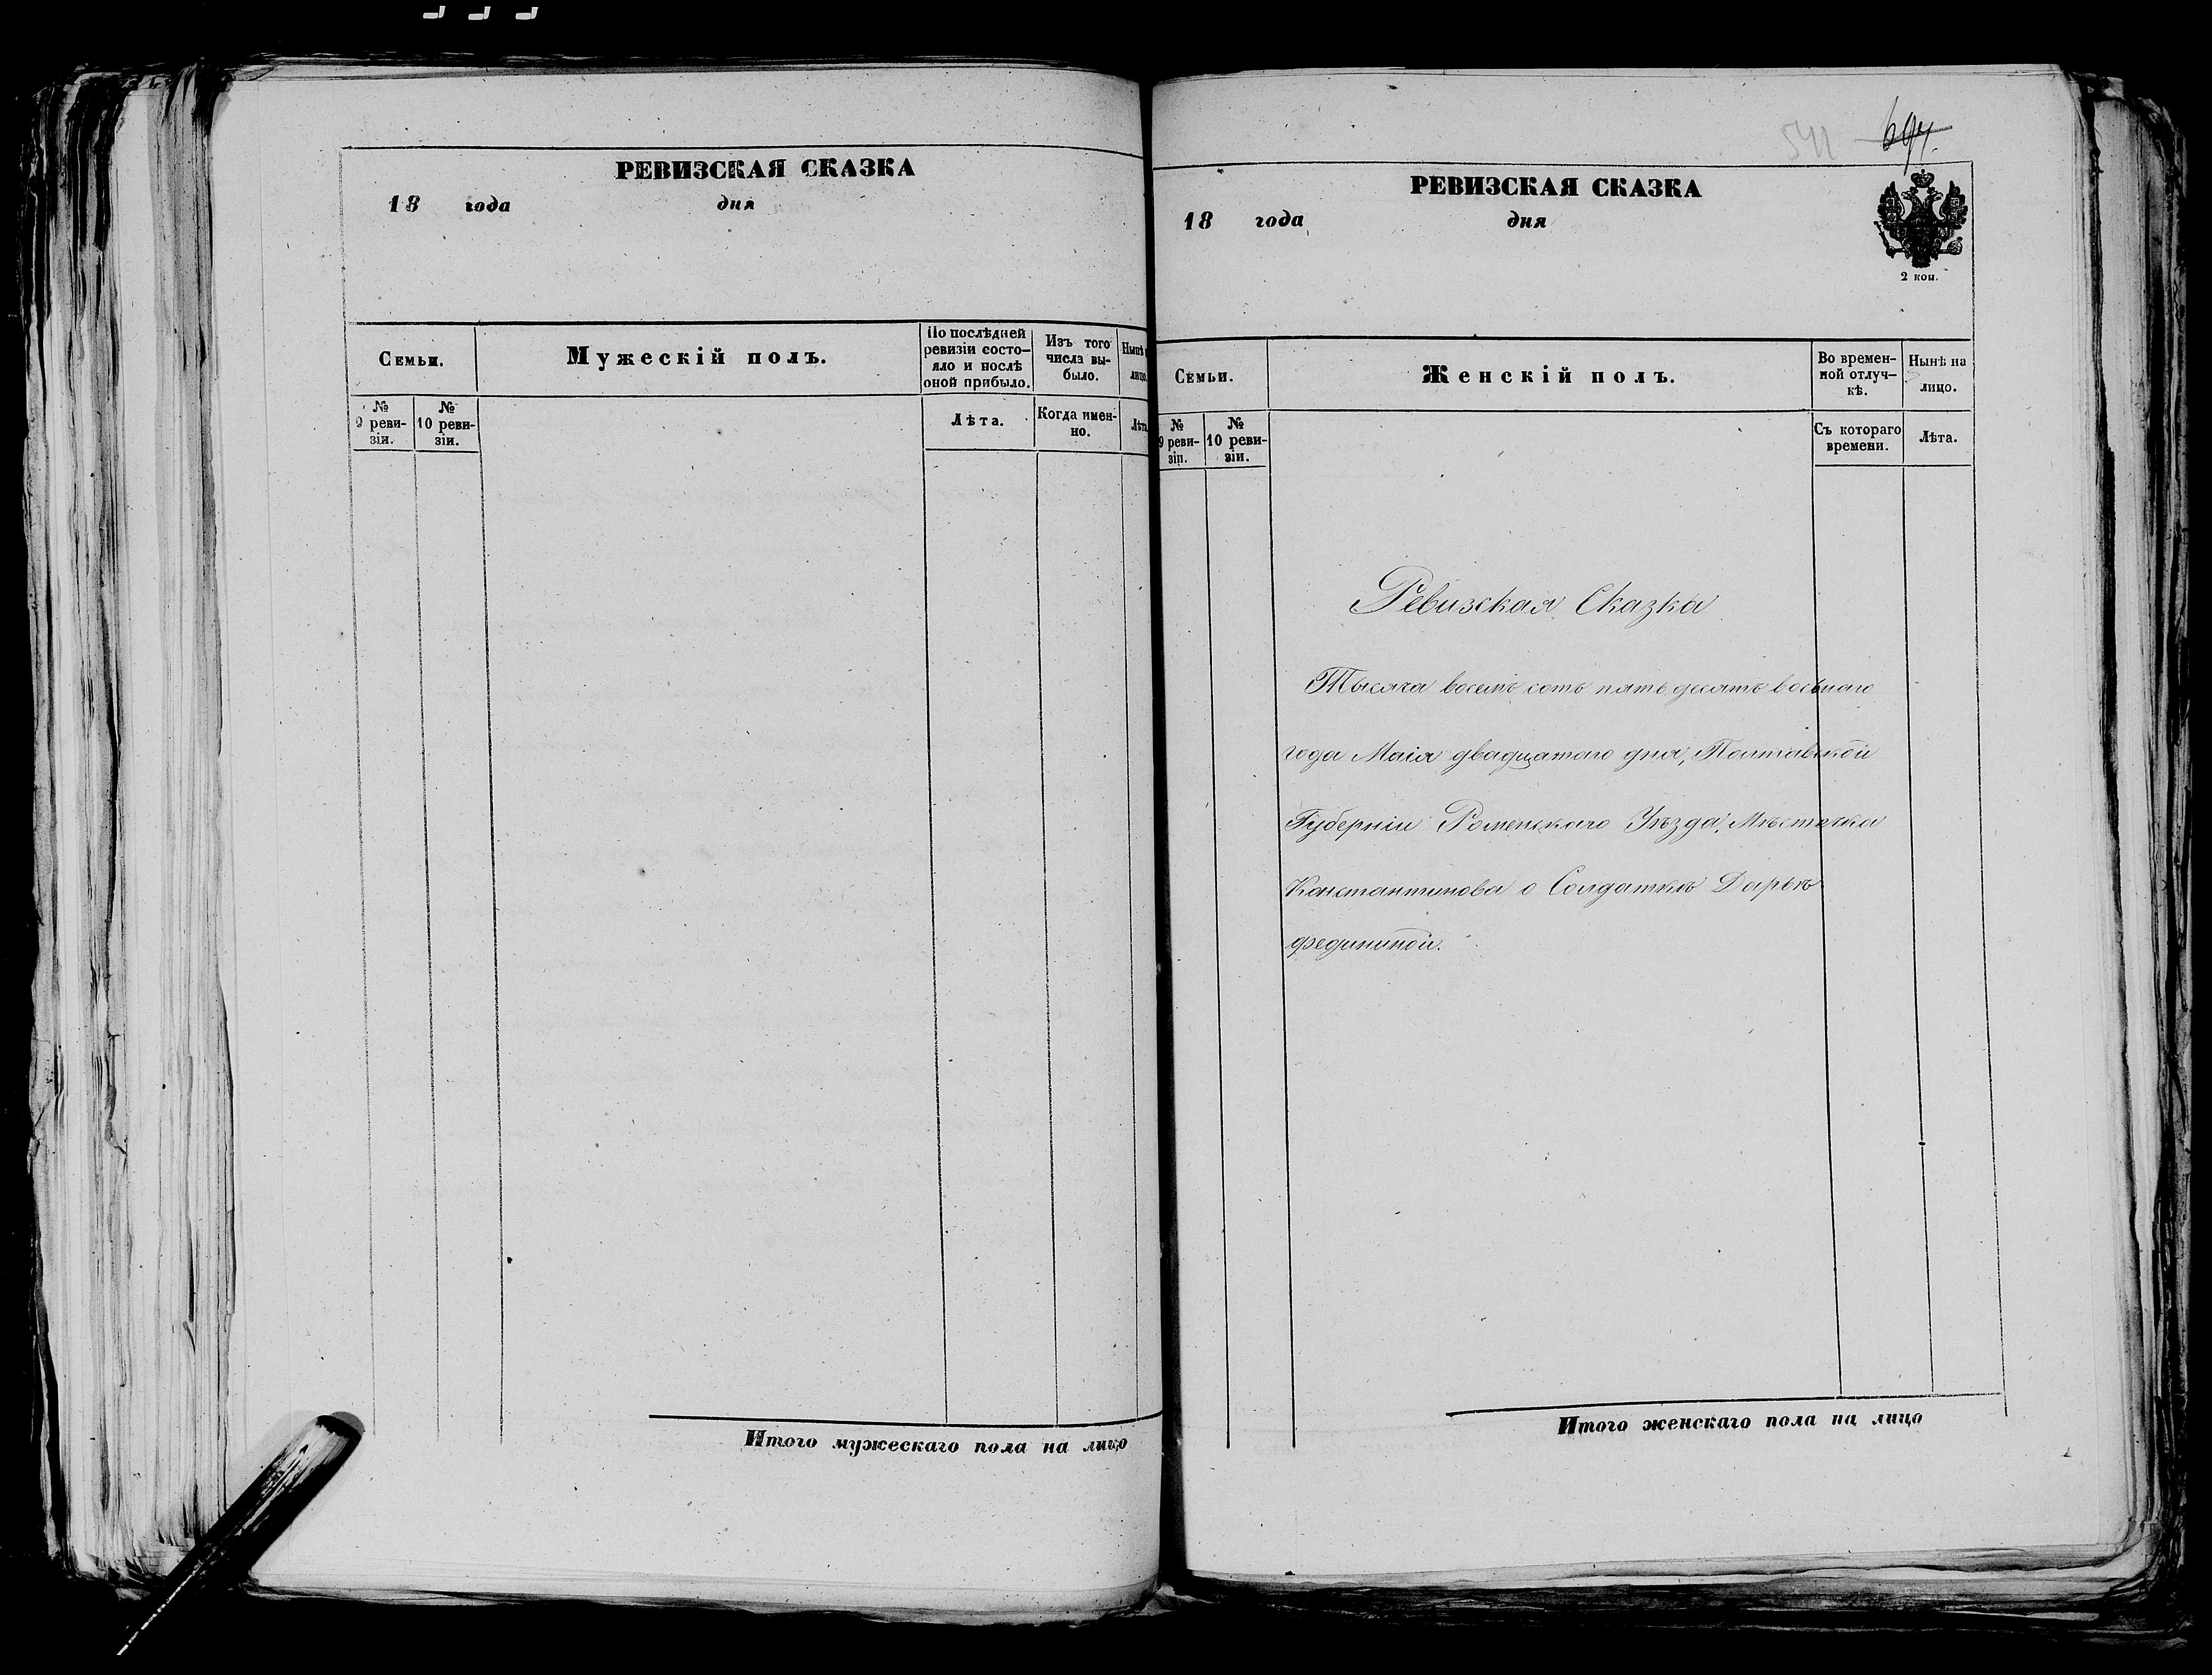 РЕВИЗСКАЯ СКАЗКА
18 года дня
Семьи.
Мужескій полъ.
По послѣдней
ревизіи состо-
яло и послѣ
оной прибыло.
Изъ того
числа вы-
было.
Нынѣ
лицо.
№
9 реви-
зіи.
№
10 реви-
зіи.
Лѣта.
Когда имен-
но.
Лѣта
Итого мужескаго пола на лицо
694.
РЕВИЗСКАЯ СКАЗКА
18 года дня
2 коп.
Семьи.
Женскій полъ.
Во времен-
ной отлуч-
кѣ.
Нынѣ на
лицо.
№
9 реви-
зіи.
№
10 реви-
зіи.
Съ котораго
времени.
Лѣта.
Ревизская Сказка
Тысяча восемь сотъ пять десятъ восьмаго
года Маія двадцатаго дня, Полтавской
Губерніи Роменскаго Уѣзда, Мѣстечка
Константинова о Солдаткѣ Дарьѣ
Федининой.
Итого женскаго пола на лицо